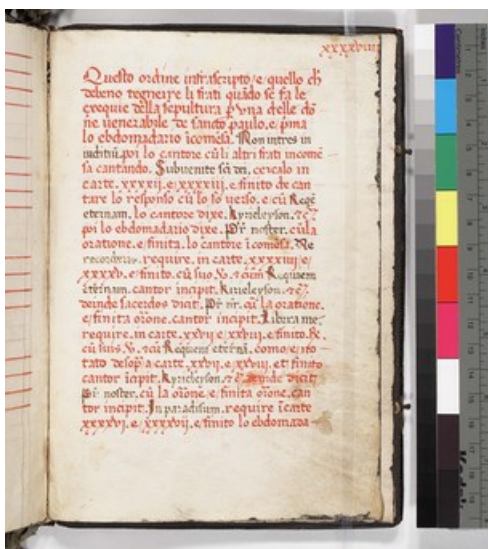 xxxxviiii
Questo ordine infrascripto / e / quello ch
debeno tegneire li frati quādo se fa le
exequie della sepultura p̄ una delle dō
ne venerabile de sancto paulo. e / p̄ma
lo ebdomadario īcomēsa. Non intres in
iuditiū. poi lo cantore cū li altri frati incomē
sa cantando. Subvenite sc̄i dei. cercalo in
carte. xxxxii. e / xxxxiii. e finito de can
tare lo responso cū lo so verso. e / cū Reqē
eternam. lo cantore dixe. Kyrieleyson. &c̄.
poi lo ebdomadario dixe. Pr̄ noster. cū la
oratione. e / finita. lo cantore īcomēsa. Ne
recorderis. require. in carte. xxxxiiii / e
xxxxv. e / finito. cū suo. V. & cum Requiem
eternam. cantor incipit. Kirieleyson. &c̄.
deinde sacerdos dicit. Pr̄ nr̄. cū la oratione.
e / finita orōne. cantor incipit. Libera me.
require. in carte. xxvii e / xxviii. e / finito. R̄.
cū suis. V. & cū Requiem eternā. como e / no
tato desop̄ a carte. xxvii. e / xxviii. et finito
cantor īcipit. Kyrieleyson. &c̄. deinde dicit
Pr̄ noster. cū la orōne e / finita orōne. can
tor incipit. In paradisum. require ī carte
xxxxvi. e / xxxxvii. e / finito lo ebdomada-
Kodak